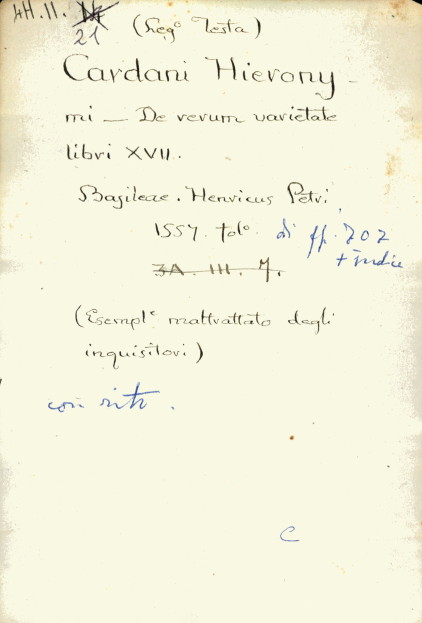 4H. II.
21
(Leg.º Testa)
Cardani Hierony-
mi — De rerum varietate
libri XVII.
Basileae. Henricus Petri,
1557. folº. di ff. 707
+ indice
3A. III. 7.
(Esempl.e maltrattato degli
inquisitori)
con ritr.
C